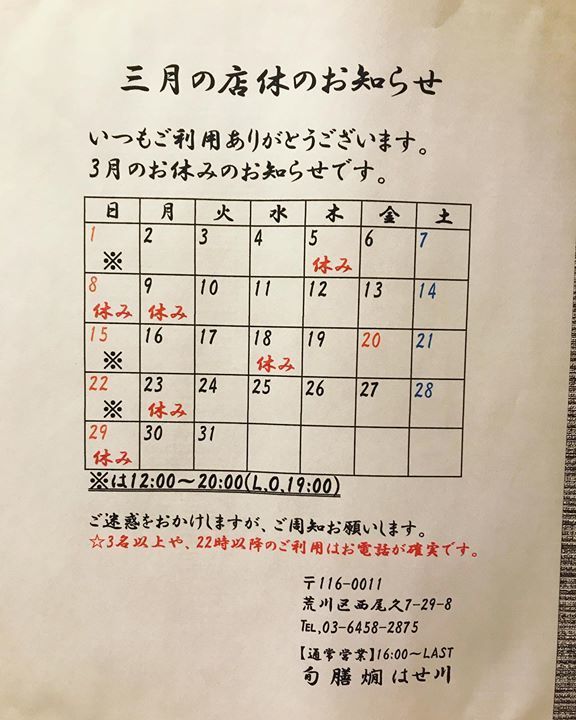 三月の店休のお知らせ
いつもご利用ありがとうございます。
3月のお休みのお知らせです。
日 月 火 水 木 金 土
1 2 3 4 5 6 7
※ 休み
8 9 10 11 12 13 14
休み 休み
15 16 17 18 19 20 21
※ 休み
22 23 24 25 26 27 28
※ 休み
29 30 31
休み
※は12:00～20:00(L.O.19:00)
ご迷惑をおかけしますが、ご周知お願いします。
☆3名以上や、22時以降のご利用はお電話が確実です。
〒116-0011
荒川区西尾久7-29-8
TEL,03-6458-2875
【通常営業】16:00～LAST
旬膳燗はせ川